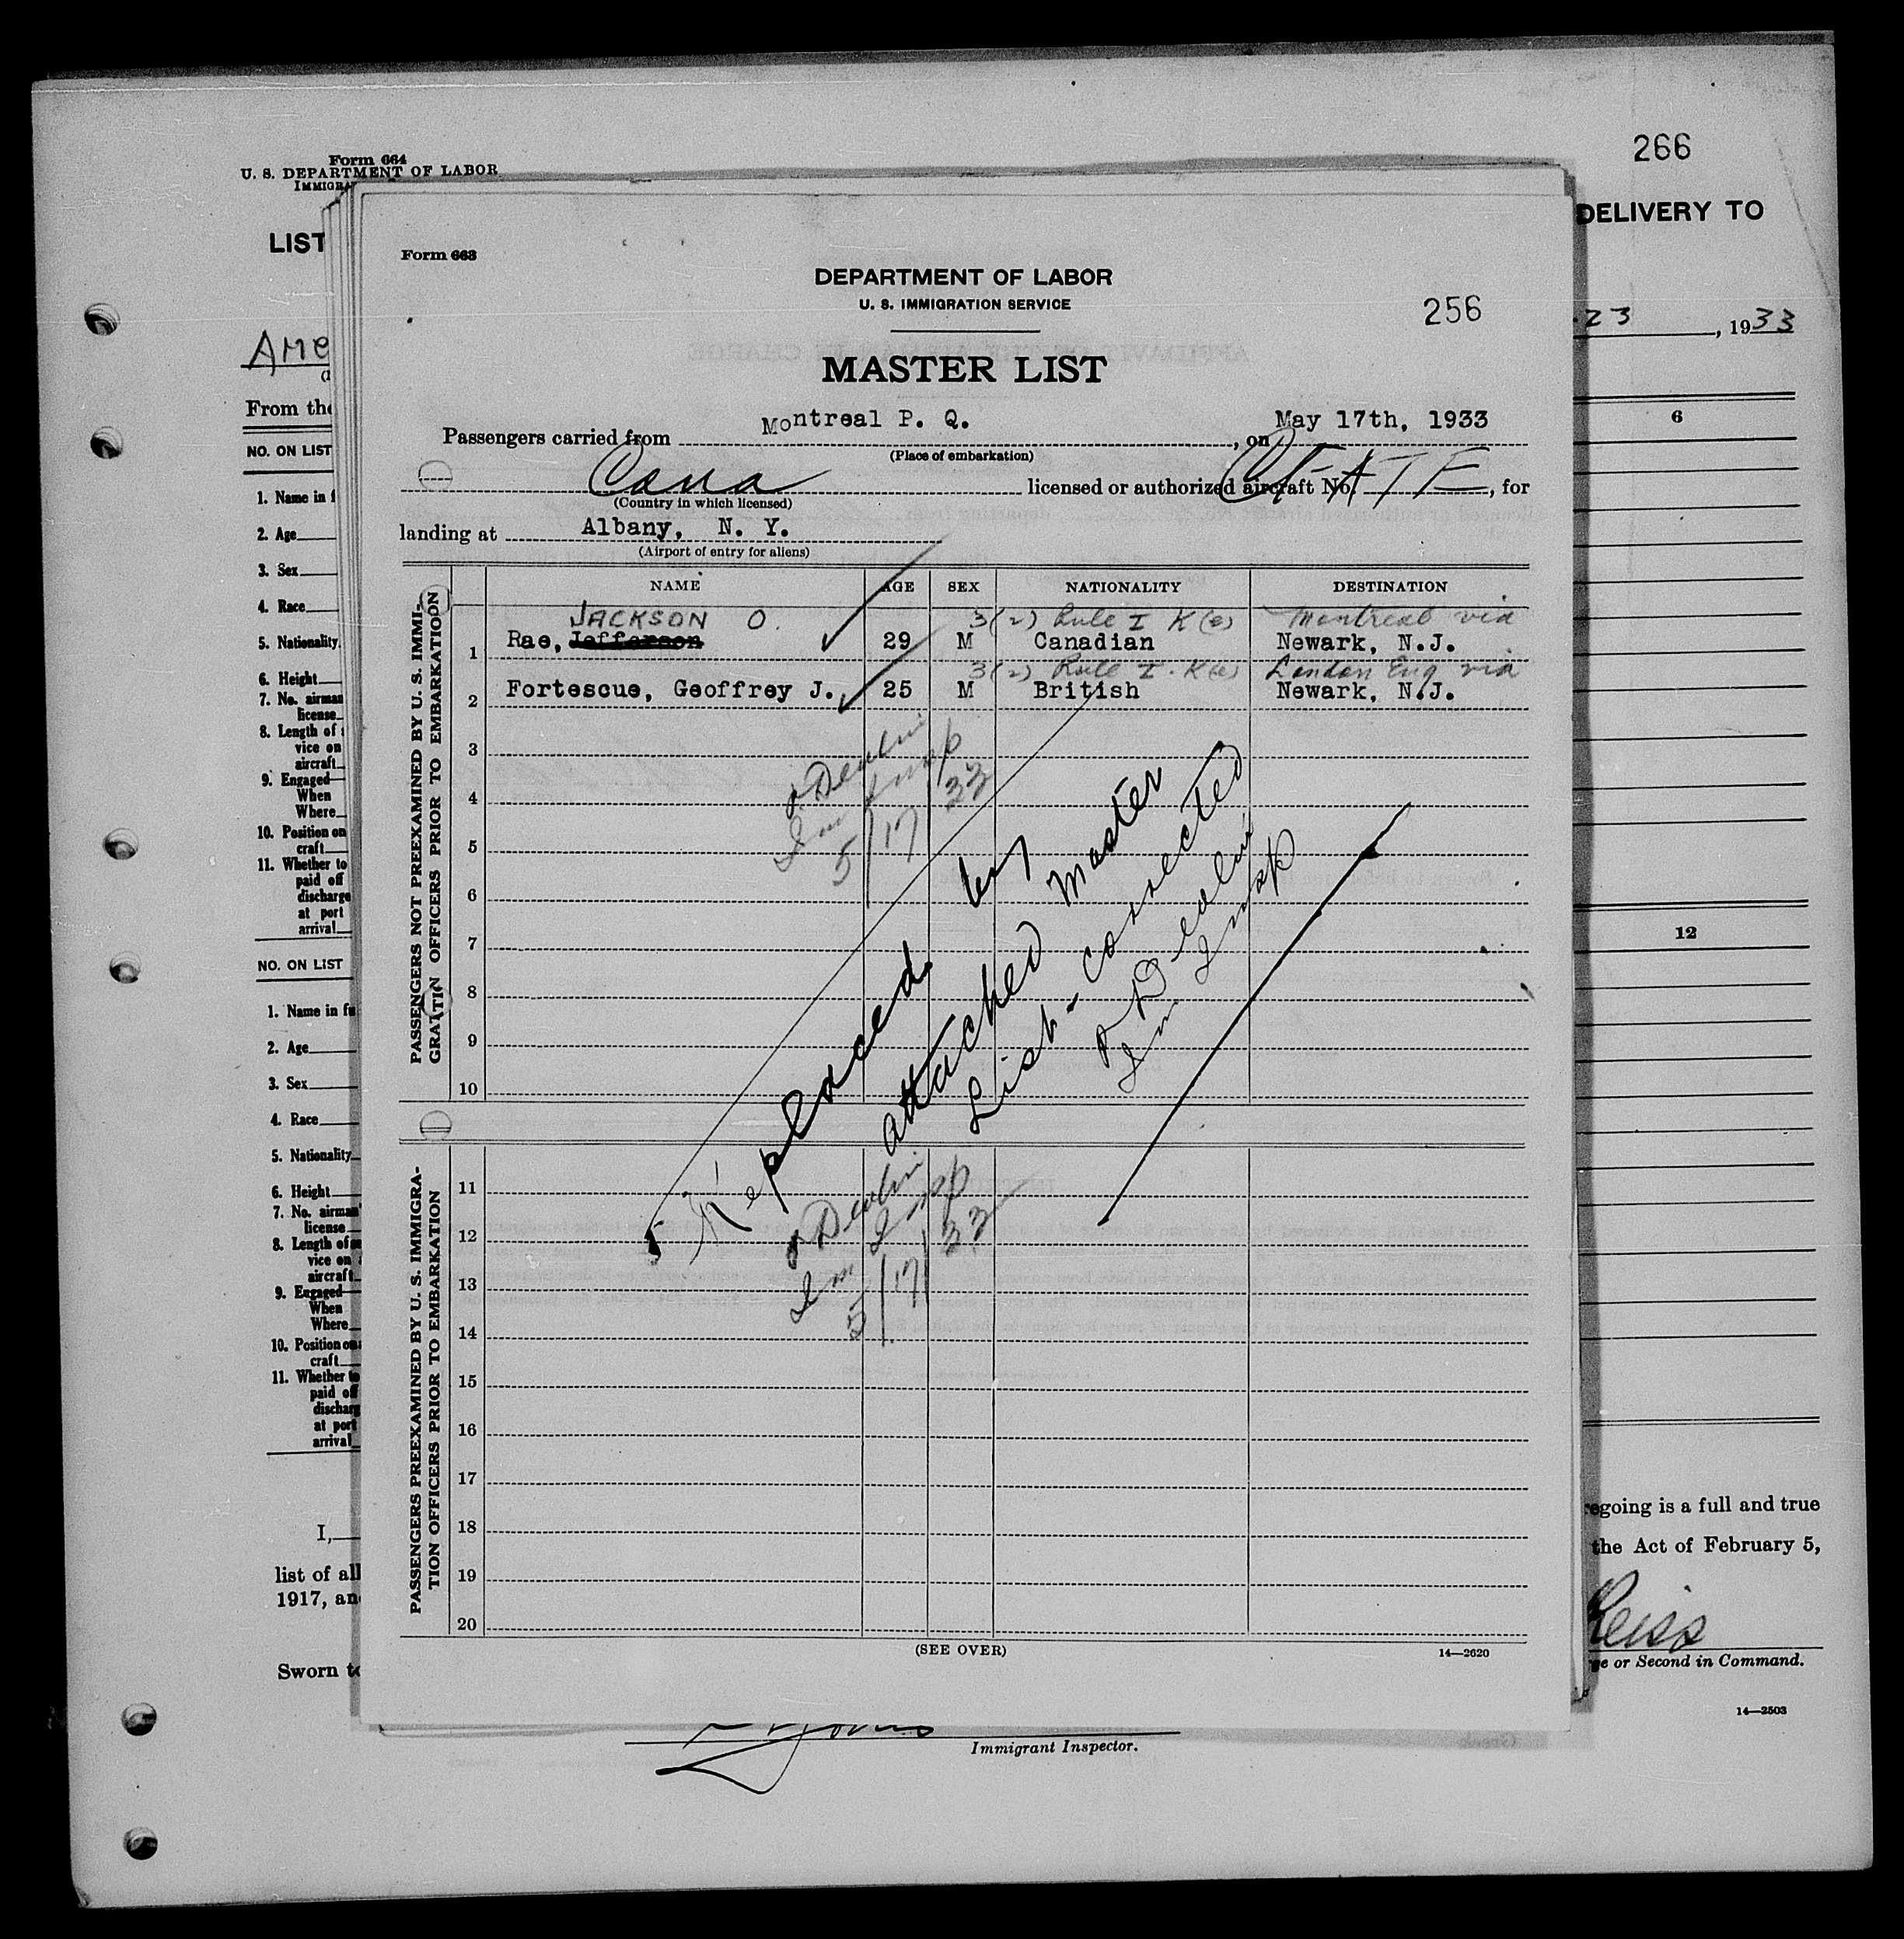 Form 664
U. S. DEPARTMENT OF LABOR
266
LIST
DELIVERY TO
23, 1933
From the
NO. ON LIST
6
1. Name in f
2. Age
3. Sex
4. Race
5. Nationality
6. Height
7. No. airman
license
8. Length of
vice on
aircraft
9. Engaged
When
Where
10. Position on
craft
11. Whether to
paid off
discharge
at port
arrival
NO. ON LIST
12
1. Name in fu
2. Age
3. Sex
4. Race
5. Nationality
6. Height
7. No. airman
license
8. Length of
vice on
aircraft
9. Engaged
When
Where
10. Position on
craft
11. Whether to
paid off
discharg
at port
arrival
I,
list of all
1917, an
Sworn to
Form 663
DEPARTMENT OF LABOR
U. S. IMMIGRATION SERVICE
256
MASTER LIST
Passengers carried from Montreal P. Q., on May 17th, 1933
(Place of embarkation)
Cana licensed or authorized aircraft No. CF-ATF, for
(Country in which licensed)
landing at Albany, N. Y.
(Airport of entry for aliens)
NAME AGE SEX NATIONALITY DESTINATION
PASSENGERS NOT PREEXAMINED BY U. S. IMMI-
GRATIN OFFICERS PRIOR TO EMBARKATION
JACKSON O. 3(2) Rule I K(e) Montreal via
1 Rae, Jefferson 29 M Canadian Newark, N.J.
3(2) Rule I. K(e) London Eng via
2 Fortescue, Geoffrey J. 25 M British Newark, N.J.
3
4
5
6
7
8
9
10
Devlin
Im Insp
5/17/33
Replaced by
attached Master
List - corrected
Devlin
Im Insp
PASSENGERS PREEXAMINED BY U. S. IMMIGRA-
TION OFFICERS PRIOR TO EMBARKATION
11
12
13
14
15
16
17
18
19
20
Devlin
Im Insp
5/17/33
(SEE OVER)
14—2620
egoing is a full and true
the Act of February 5,
Reiss
ge or Second in Command.
14—2503
Immigrant Inspector.